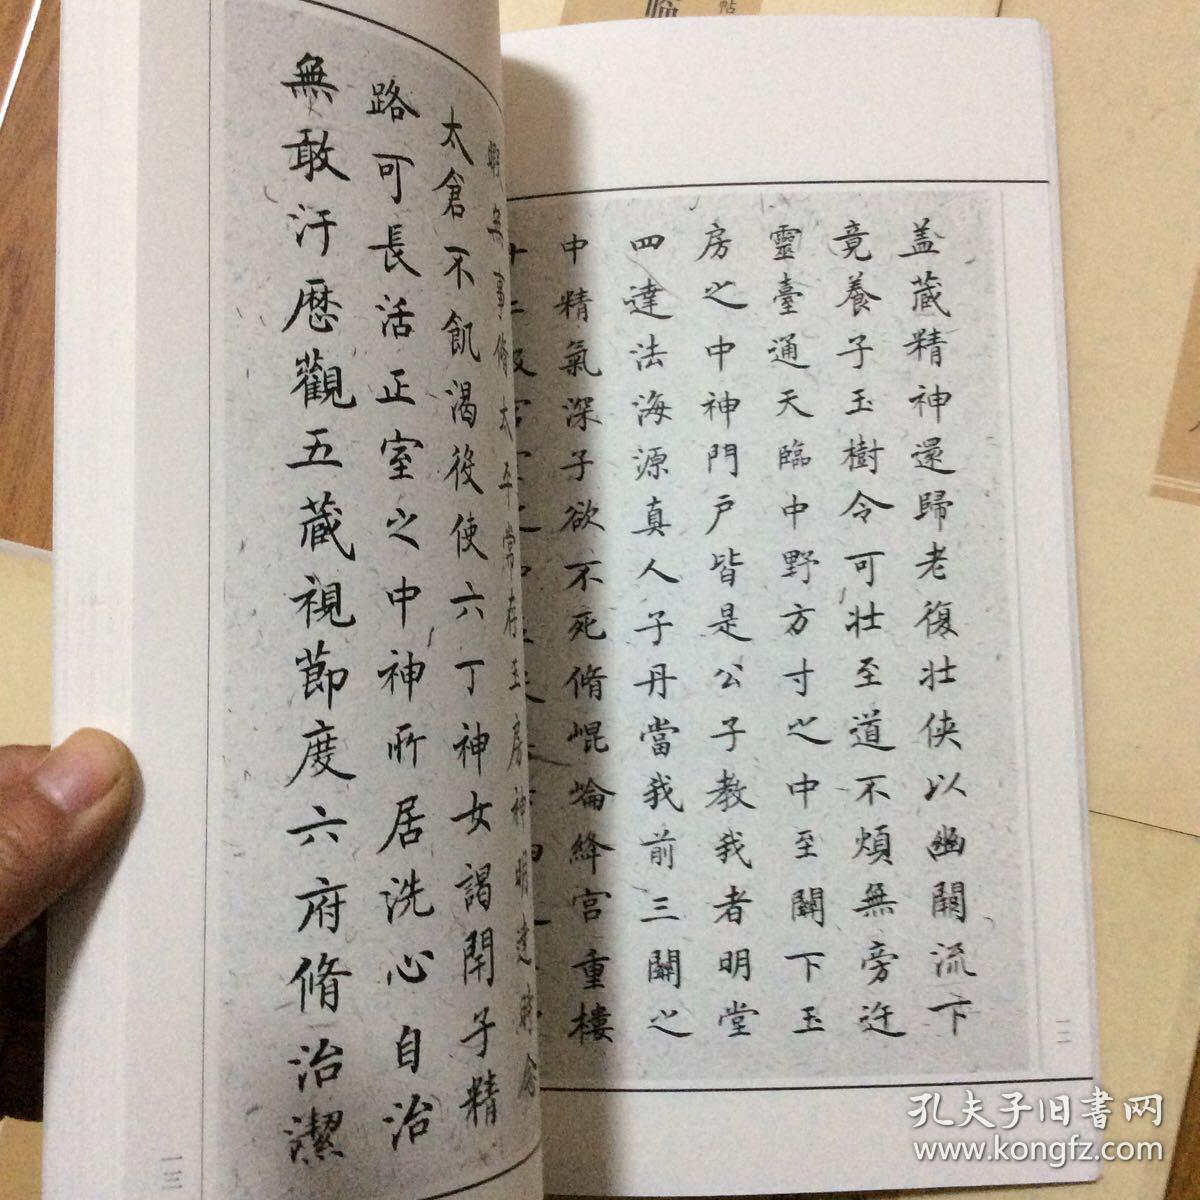 盖藏精神還歸老復壯俠以幽闕流下
竟養子玉樹令可壯至道不煩無旁迕
靈臺通天臨中野方寸之中至關下玉
房之中神門戶皆是公子教我者明堂
四達法海源真人子丹當我前三關之
中精氣深子欲不死脩崐崘絳宮重樓
一二
無事脩太平常存玉房神明達時念
太倉不飢渴役使六丁神女謁閇子精
路可長活正室之中神所居洗心自治
無敢汙歷觀五藏視節度六府脩治潔
一三
孔夫子旧書网
www.kongfz.com